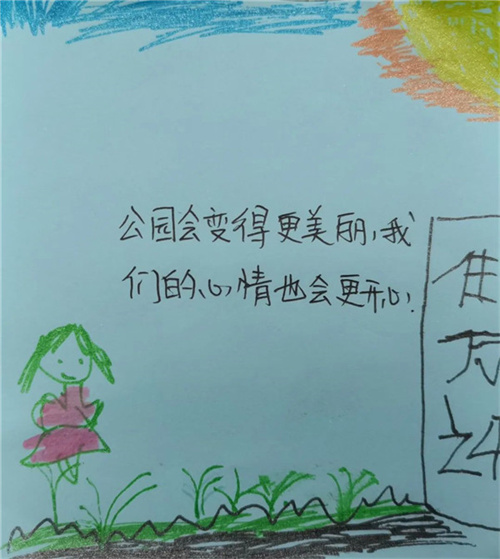 公园会变得更美丽,我
们的心情也会更开心!